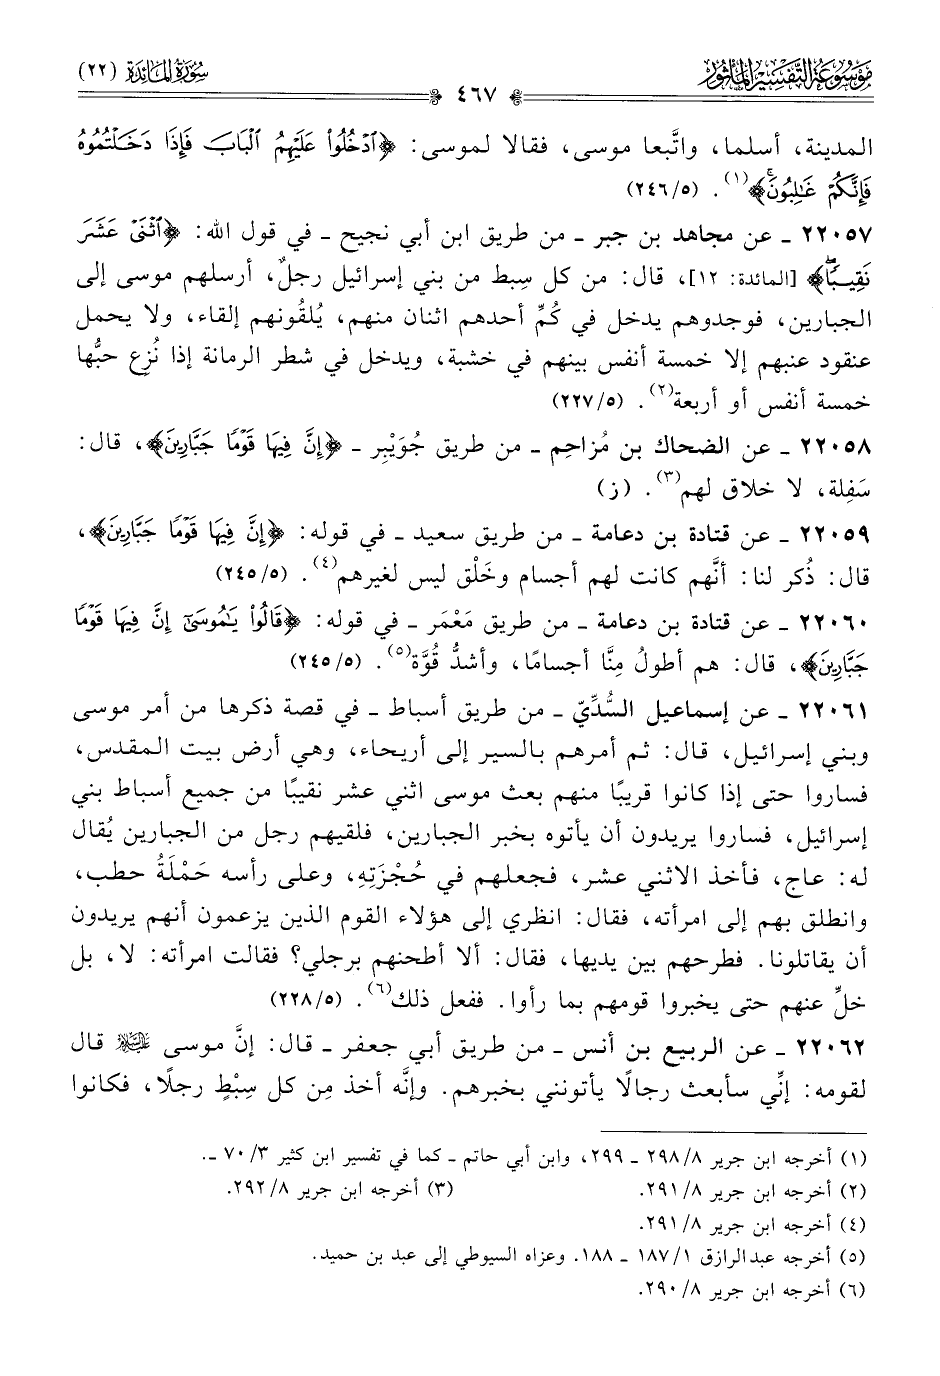 موسوعة التفسير المأثور
٤٦٧
سورة المائدة (٢٢)
المدينة، أسلما، واتَّبعا موسى، فقالا لموسى: ﴿ٱدۡخُلُواْ عَلَيۡهِمُ ٱلۡبَابَ فَإِذَا دَخَلۡتُمُوهُ
فَإِنَّكُمۡ غَٰلِبُونَۚ﴾(١). (٢٤٦/٥)
٢٢٠٥٧ ـ عن مجاهد بن جبر ـ من طريق ابن أبي نجيح ـ في قول الله: ﴿ٱثۡنَيۡ عَشَرَ
نَقِيبٗاۖ﴾ [المائدة: ١٢]، قال: من كل سِبط من بني إسرائيل رجلٌ، أرسلهم موسى إلى
الجبارين، فوجدوهم يدخل في كُمِّ أحدهم اثنان منهم، يُلقُونهم إلقاء، ولا يحمل
عنقود عنبهم إلا خمسة أنفس بينهم في خشبة، ويدخل في شطر الرمانة إذا نُزِع حبُّها
خمسة أنفس أو أربعة(٢). (٢٢٧/٥)
٢٢٠٥٨ ـ عن الضحاك بن مُزاحِم ـ من طريق جُوَيْبِر ـ ﴿إِنَّ فِيهَا قَوۡمٗا جَبَّارِينَ﴾، قال:
سَفِلة، لا خلاق لهم(٣). (ز)
٢٢٠٥٩ ـ عن قتادة بن دعامة ـ من طريق سعيد ـ في قوله: ﴿إِنَّ فِيهَا قَوۡمٗا جَبَّارِينَ﴾،
قال: ذُكر لنا: أنَّهم كانت لهم أجسام وخَلْق ليس لغيرهم(٤). (٢٤٥/٥)
٢٢٠٦٠ ـ عن قتادة بن دعامة ـ من طريق مَعْمَر ـ في قوله: ﴿قَالُواْ يَٰمُوسَىٰٓ إِنَّ فِيهَا قَوۡمٗا
جَبَّارِينَ﴾، قال: هم أطولُ مِنَّا أجسامًا، وأشدُّ قُوَّة(٥). (٢٤٥/٥)
٢٢٠٦١ ـ عن إسماعيل السُّدِّيّ ـ من طريق أسباط ـ في قصة ذكرها من أمر موسى
وبني إسرائيل، قال: ثم أمرهم بالسير إلى أريحاء، وهي أرض بيت المقدس،
فساروا حتى إذا كانوا قريبًا منهم بعث موسى اثني عشر نقيبًا من جميع أسباط بني
إسرائيل، فساروا يريدون أن يأتوه بخبر الجبارين، فلقيهم رجل من الجبارين يُقال
له: عاج، فأخذ الاثني عشر، فجعلهم في حُجْزَتِهِ، وعلى رأسه حَمْلَةُ حطب،
وانطلق بهم إلى امرأته، فقال: انظري إلى هؤلاء القوم الذين يزعمون أنهم يريدون
أن يقاتلونا. فطرحهم بين يديها، فقال: ألا أطحنهم برجلي؟ فقالت امرأته: لا، بل
خلِّ عنهم حتى يخبروا قومهم بما رأوا. ففعل ذلك(٦). (٢٢٨/٥)
٢٢٠٦٢ ـ عن الربيع بن أنس ـ من طريق أبي جعفر ـ قال: إنَّ موسى عليه السلام قال
لقومه: إنِّي سأبعث رجالًا يأتونني بخبرهم. وإنَّه أخذ مِن كل سِبْطٍ رجلًا، فكانوا
(١) أخرجه ابن جرير ٢٩٨/٨ ـ ٢٩٩، وابن أبي حاتم ـ كما في تفسير ابن كثير ٧٠/٣ ـ.
(٢) أخرجه ابن جرير ٢٩١/٨. (٣) أخرجه ابن جرير ٢٩٢/٨.
(٤) أخرجه ابن جرير ٢٩١/٨.
(٥) أخرجه عبدالرازق ١٨٧/١ ـ ١٨٨. وعزاه السيوطي إلى عبد بن حميد.
(٦) أخرجه ابن جرير ٢٩٠/٨.